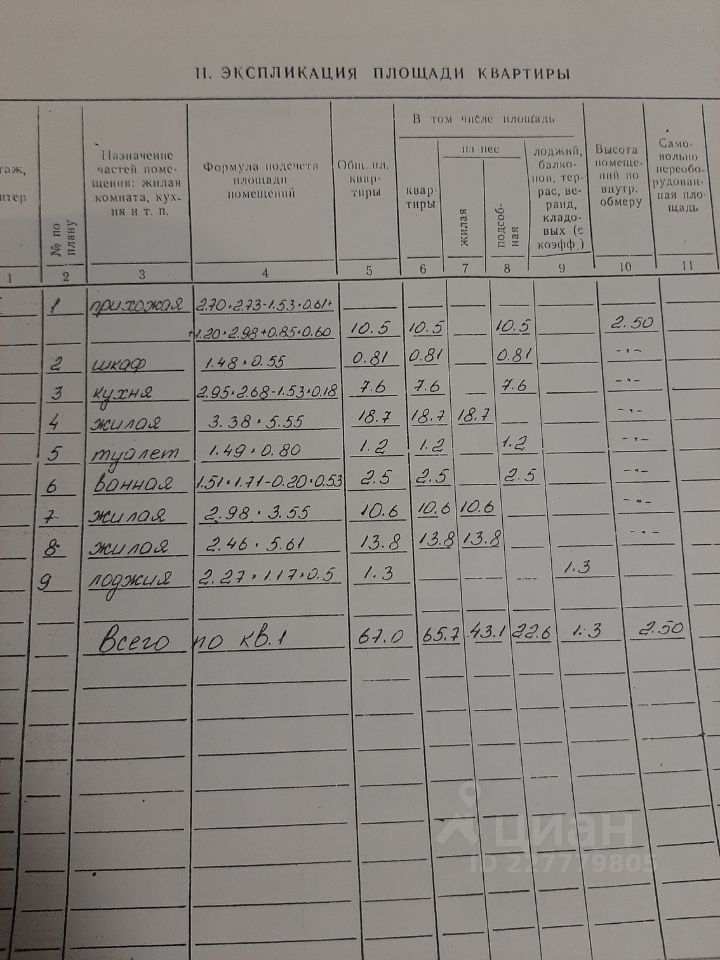 II. ЭКСПЛИКАЦИЯ ПЛОЩАДИ КВАРТИРЫ
таж, № по плану Назначение частей поме-щения: жилая комната, кух-ня и т. п. Формула подсчета площади помещений Общ. пл. квар-тиры В том числе площадь из нее квар-тиры жилая подсоб-ная лоджий, балко-нов, тер-рас, ве-ранд, кладо-вых (с коэфф.) Высота помеще-ний по внутр. обмеру Само-вольно переобо-рудован-ная пло-щадь
1 2 3 4 5 6 7 8 9 10 11
1 прихожая 2.70·2.73-1.53·0.61+
+1.20·2.98+0.85·0.60 10.5 10.5 10.5 2.50
2 шкаф 1.48·0.55 0.81 0.81 0.81 -"-
3 кухня 2.95·2.68-1.53·0.18 7.6 7.6 7.6 -"-
4 жилая 3.38·5.55 18.7 18.7 18.7 -"-
5 туалет 1.49·0.80 1.2 1.2 1.2 -"-
6 ванная 1.51·1.71-0.20·0.53 2.5 2.5 2.5 -"-
7 жилая 2.98·3.55 10.6 10.6 10.6 -"-
8 жилая 2.46·5.61 13.8 13.8 13.8 -"-
9 лоджия 2.27·1.17·0.5 1.3 1.3
Всего по кв.1 67.0 65.7 43.1 22.6 1.3 2.50
циан
ID 227779805